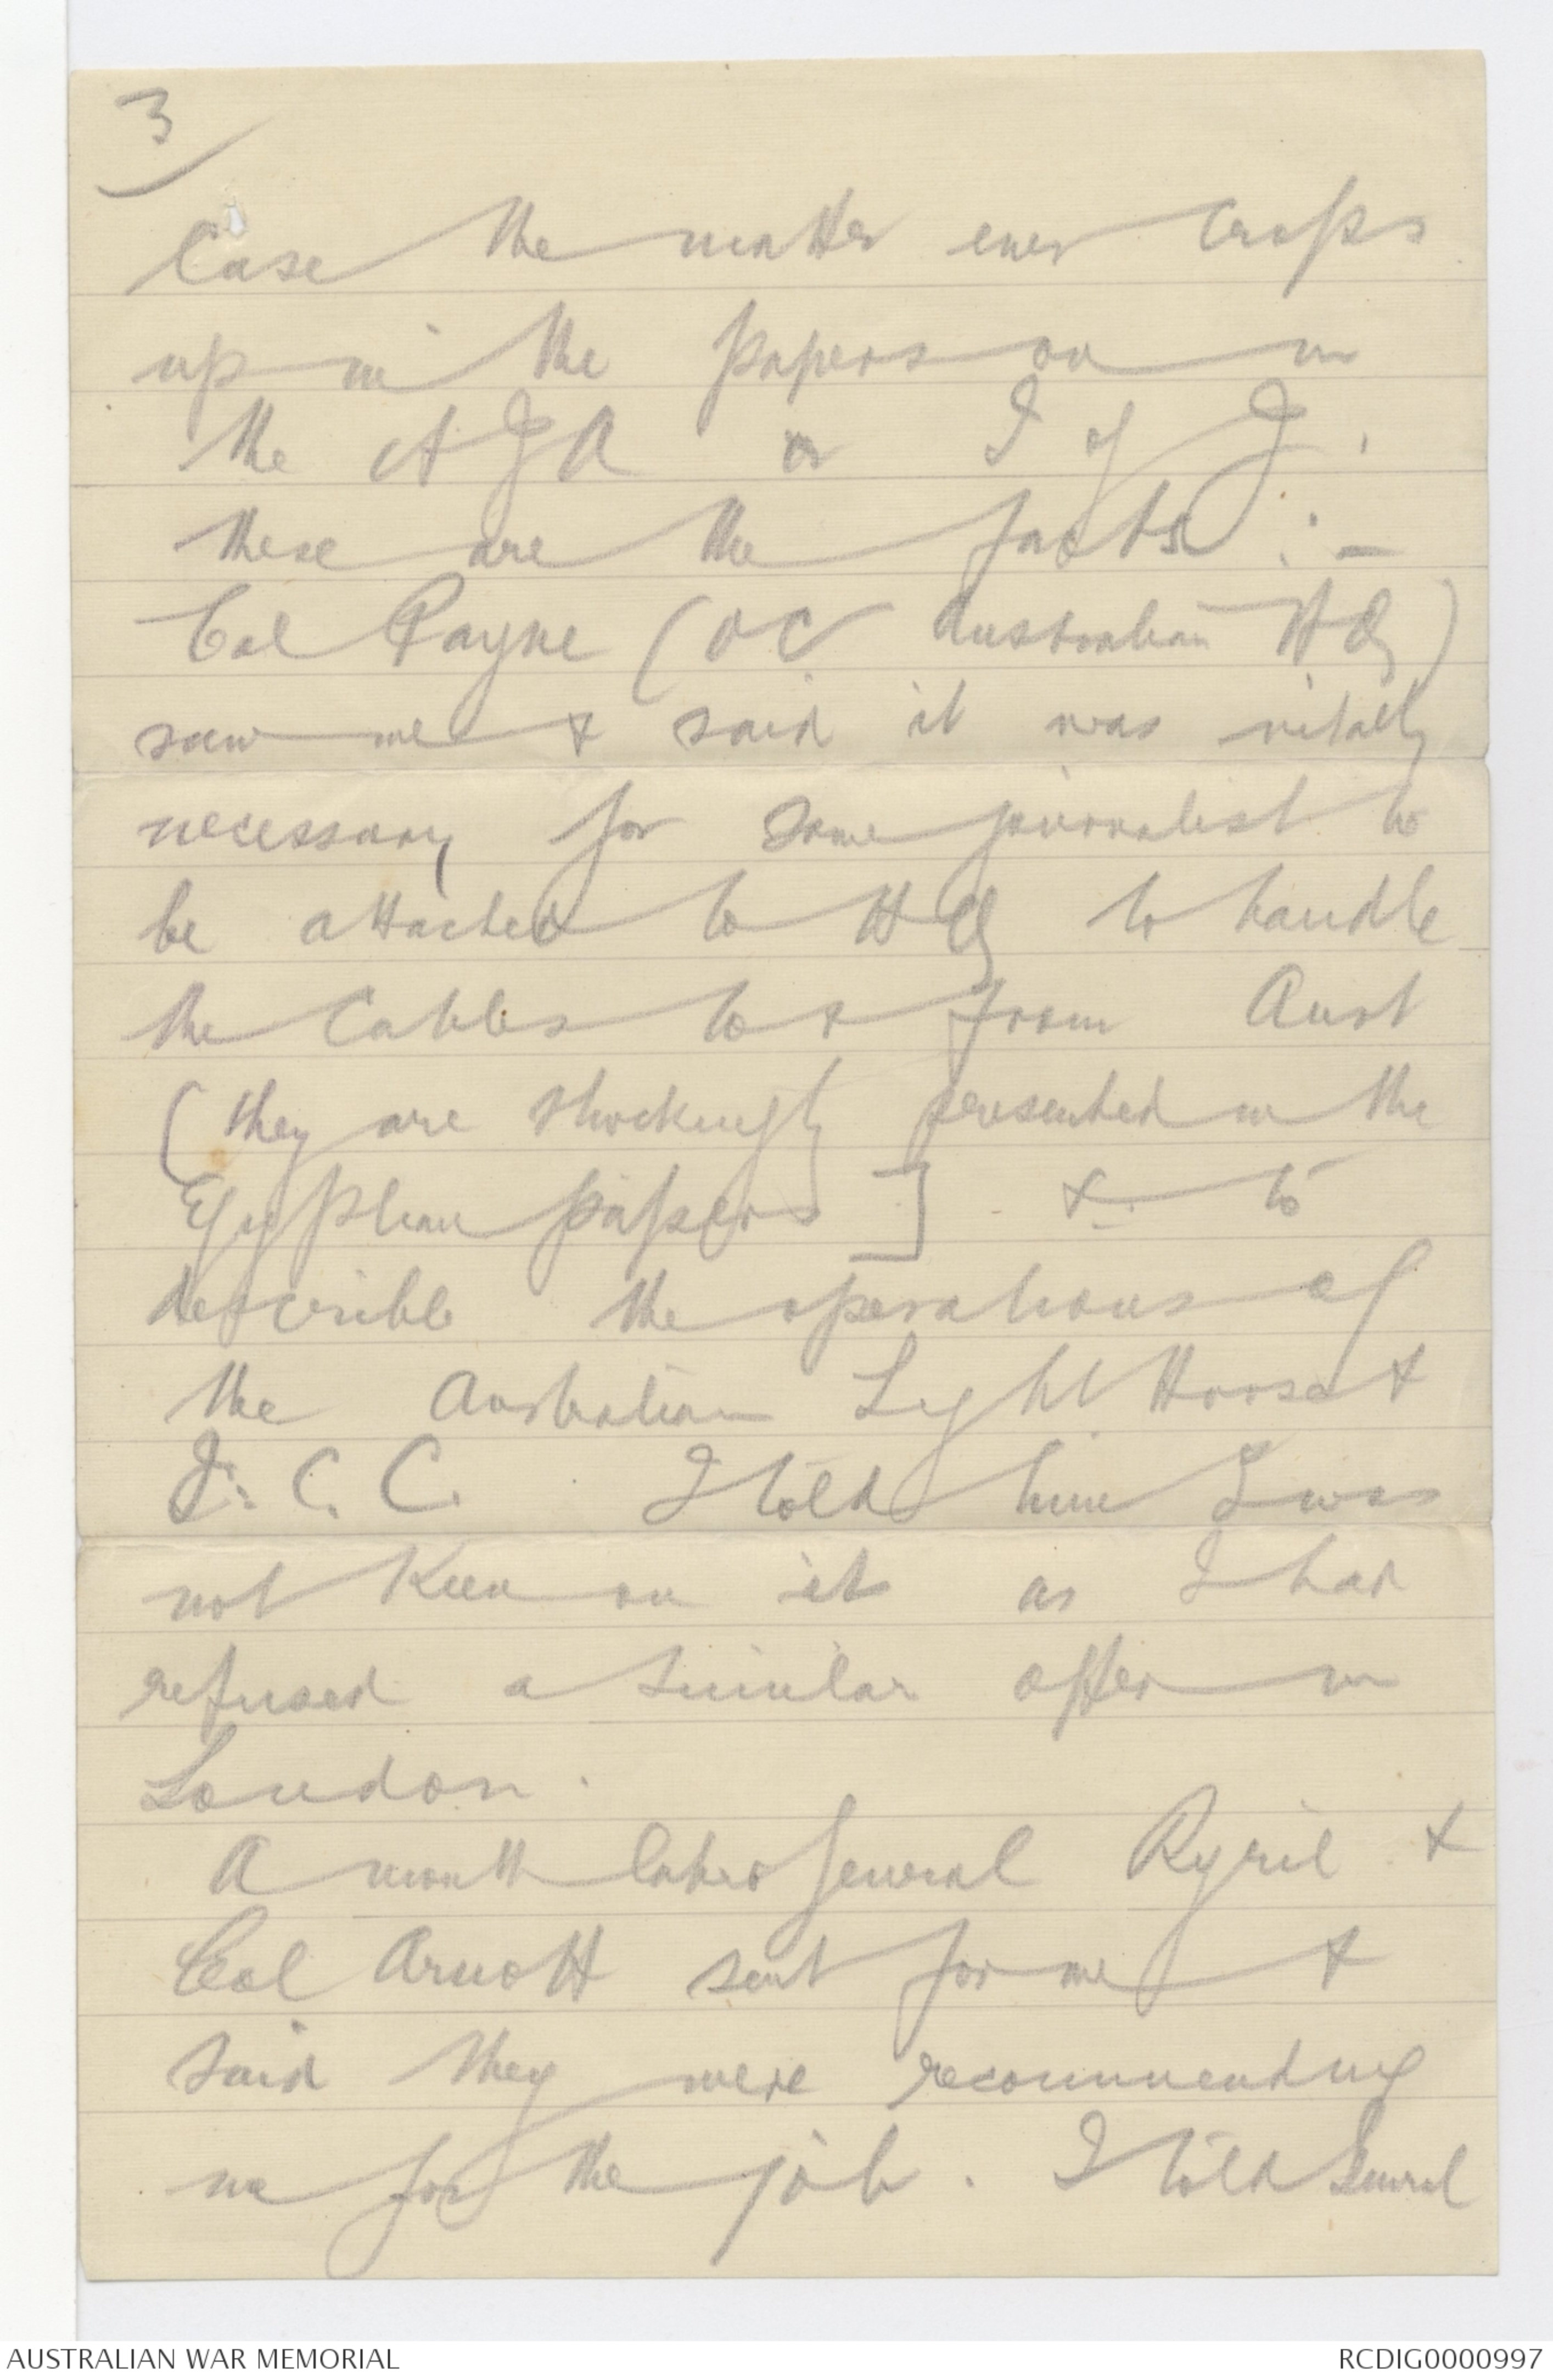 3/
Case the matter ever crops
up in the papers or in
the AJA or I of J.
these are the facts :-
Col Payne (OC Australian HQ)
saw me & said it was vitally
necessary for some journalist to
be attached to HQ to handle
the Cables to & from Aust
(they are shockingly presented in the
Egyptian papers] & to
describe the operations of
the Australian Light Horse &
I. C. C. I told him I was
not keen on it as I had
refused a similar offer in
London.
A month later General Ryrie &
Col Arnott sent for me &
said they were recommending
me for the job. I told General
AUSTRALIAN WAR MEMORIAL
RCDIG0000997